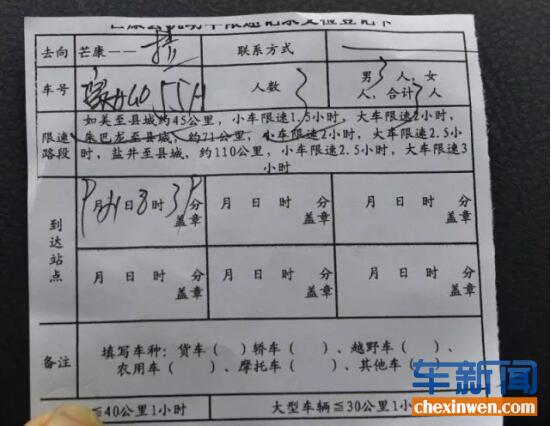 芒康县机动车限速记录受检登记卡
去向 芒康—— 联系方式
车号 人数 男3人，女
人，合计 人
限速路段
如美至县城约45公里，小车限速1.5小时，大车限速2小时，
朱巴龙至县城，约71公里，小车限速2小时，大车限速2.5小
时，盐井至县城，约110公里，小车限速2.5小时，大车限速3
小时
到达站点
月 日8时 分 月 日 时 分 月 日 时 分
盖章 盖章 盖章
月 日 时 分 月 日 时 分 月 日 时 分
盖章 盖章 盖章
备注
填写车种：货车（ ）轿车（ ）、越野车（ ）、
农用车（ ）、摩托车（ ）、其他车（ ）
≦40公里1小时 大型车辆≦30公里1小
车新闻
chexinwen.com